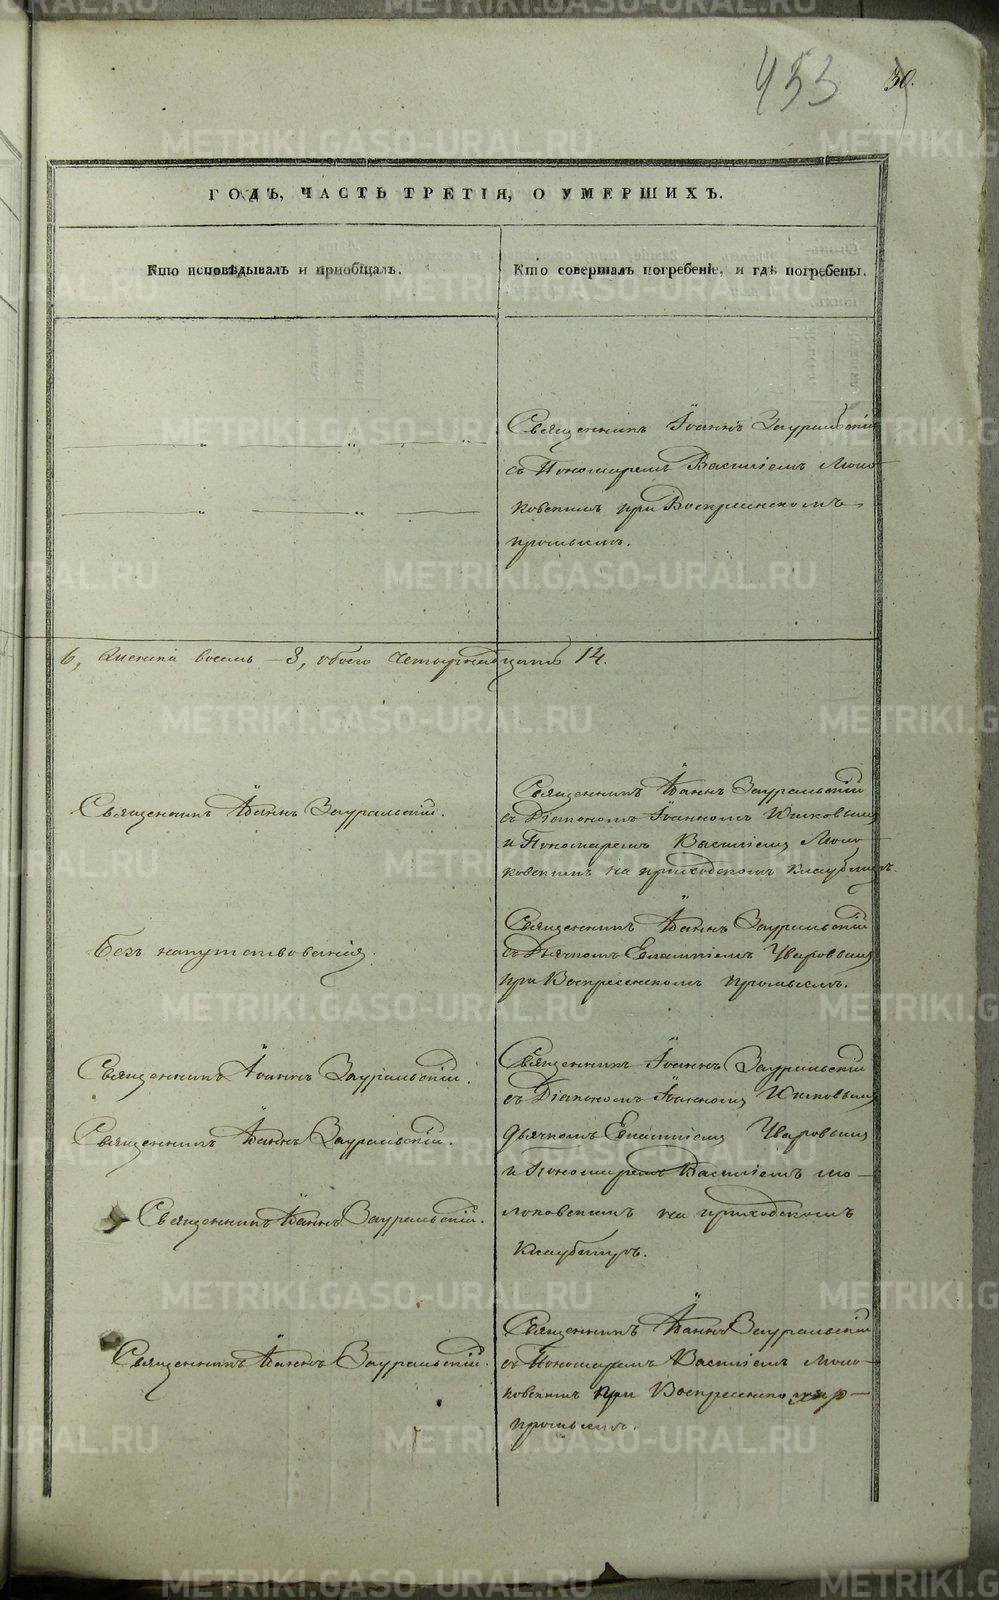 453
30.
ГОДЪ, ЧАСТЬ ТРЕТІЯ, О УМЕРШИХЪ.
Кто исповѣдывалъ и пріобщалъ.
Кто совершалъ погребеніе, и гдѣ погребены.
Священникъ Іоаннъ Зауральскій
съ Пономаремъ Василіемъ Моло-
ковскимъ при Воскресенскомъ
промыслѣ.
6, женска восемь - 8, обоего четырнадцать 14.
Священникъ Іоаннъ Зауральскій.
Священникъ Іоаннъ Зауральскій
съ Діакономъ Іоанномъ
и Пономаремъ Василіемъ Моло-
ковскимъ на приходскомъ кладбищѣ.
Безъ напутствованія.
Священникъ Іоаннъ Зауральскій
съ Дьячкомъ Евлампіемъ Уваровымъ
при Воскресенскомъ промыслѣ.
Священникъ Іоаннъ Зауральскій.
Священникъ Іоаннъ Зауральскій.
Священникъ Іоаннъ Зауральскій.
Священникъ Іоаннъ Зауральскій
съ Діакономъ Іоанномъ
дьячкомъ Евлампіемъ Уваровымъ
и Пономаремъ Василіемъ Мо-
локовскимъ на приходскомъ
кладбищѣ.
Священникъ Іоаннъ Зауральскій.
Священникъ Іоаннъ Зауральскій
съ Пономаремъ Василіемъ Моло-
ковскимъ при Воскресенскомъ
промыслѣ.
METRIKI.GASO-URAL.RU